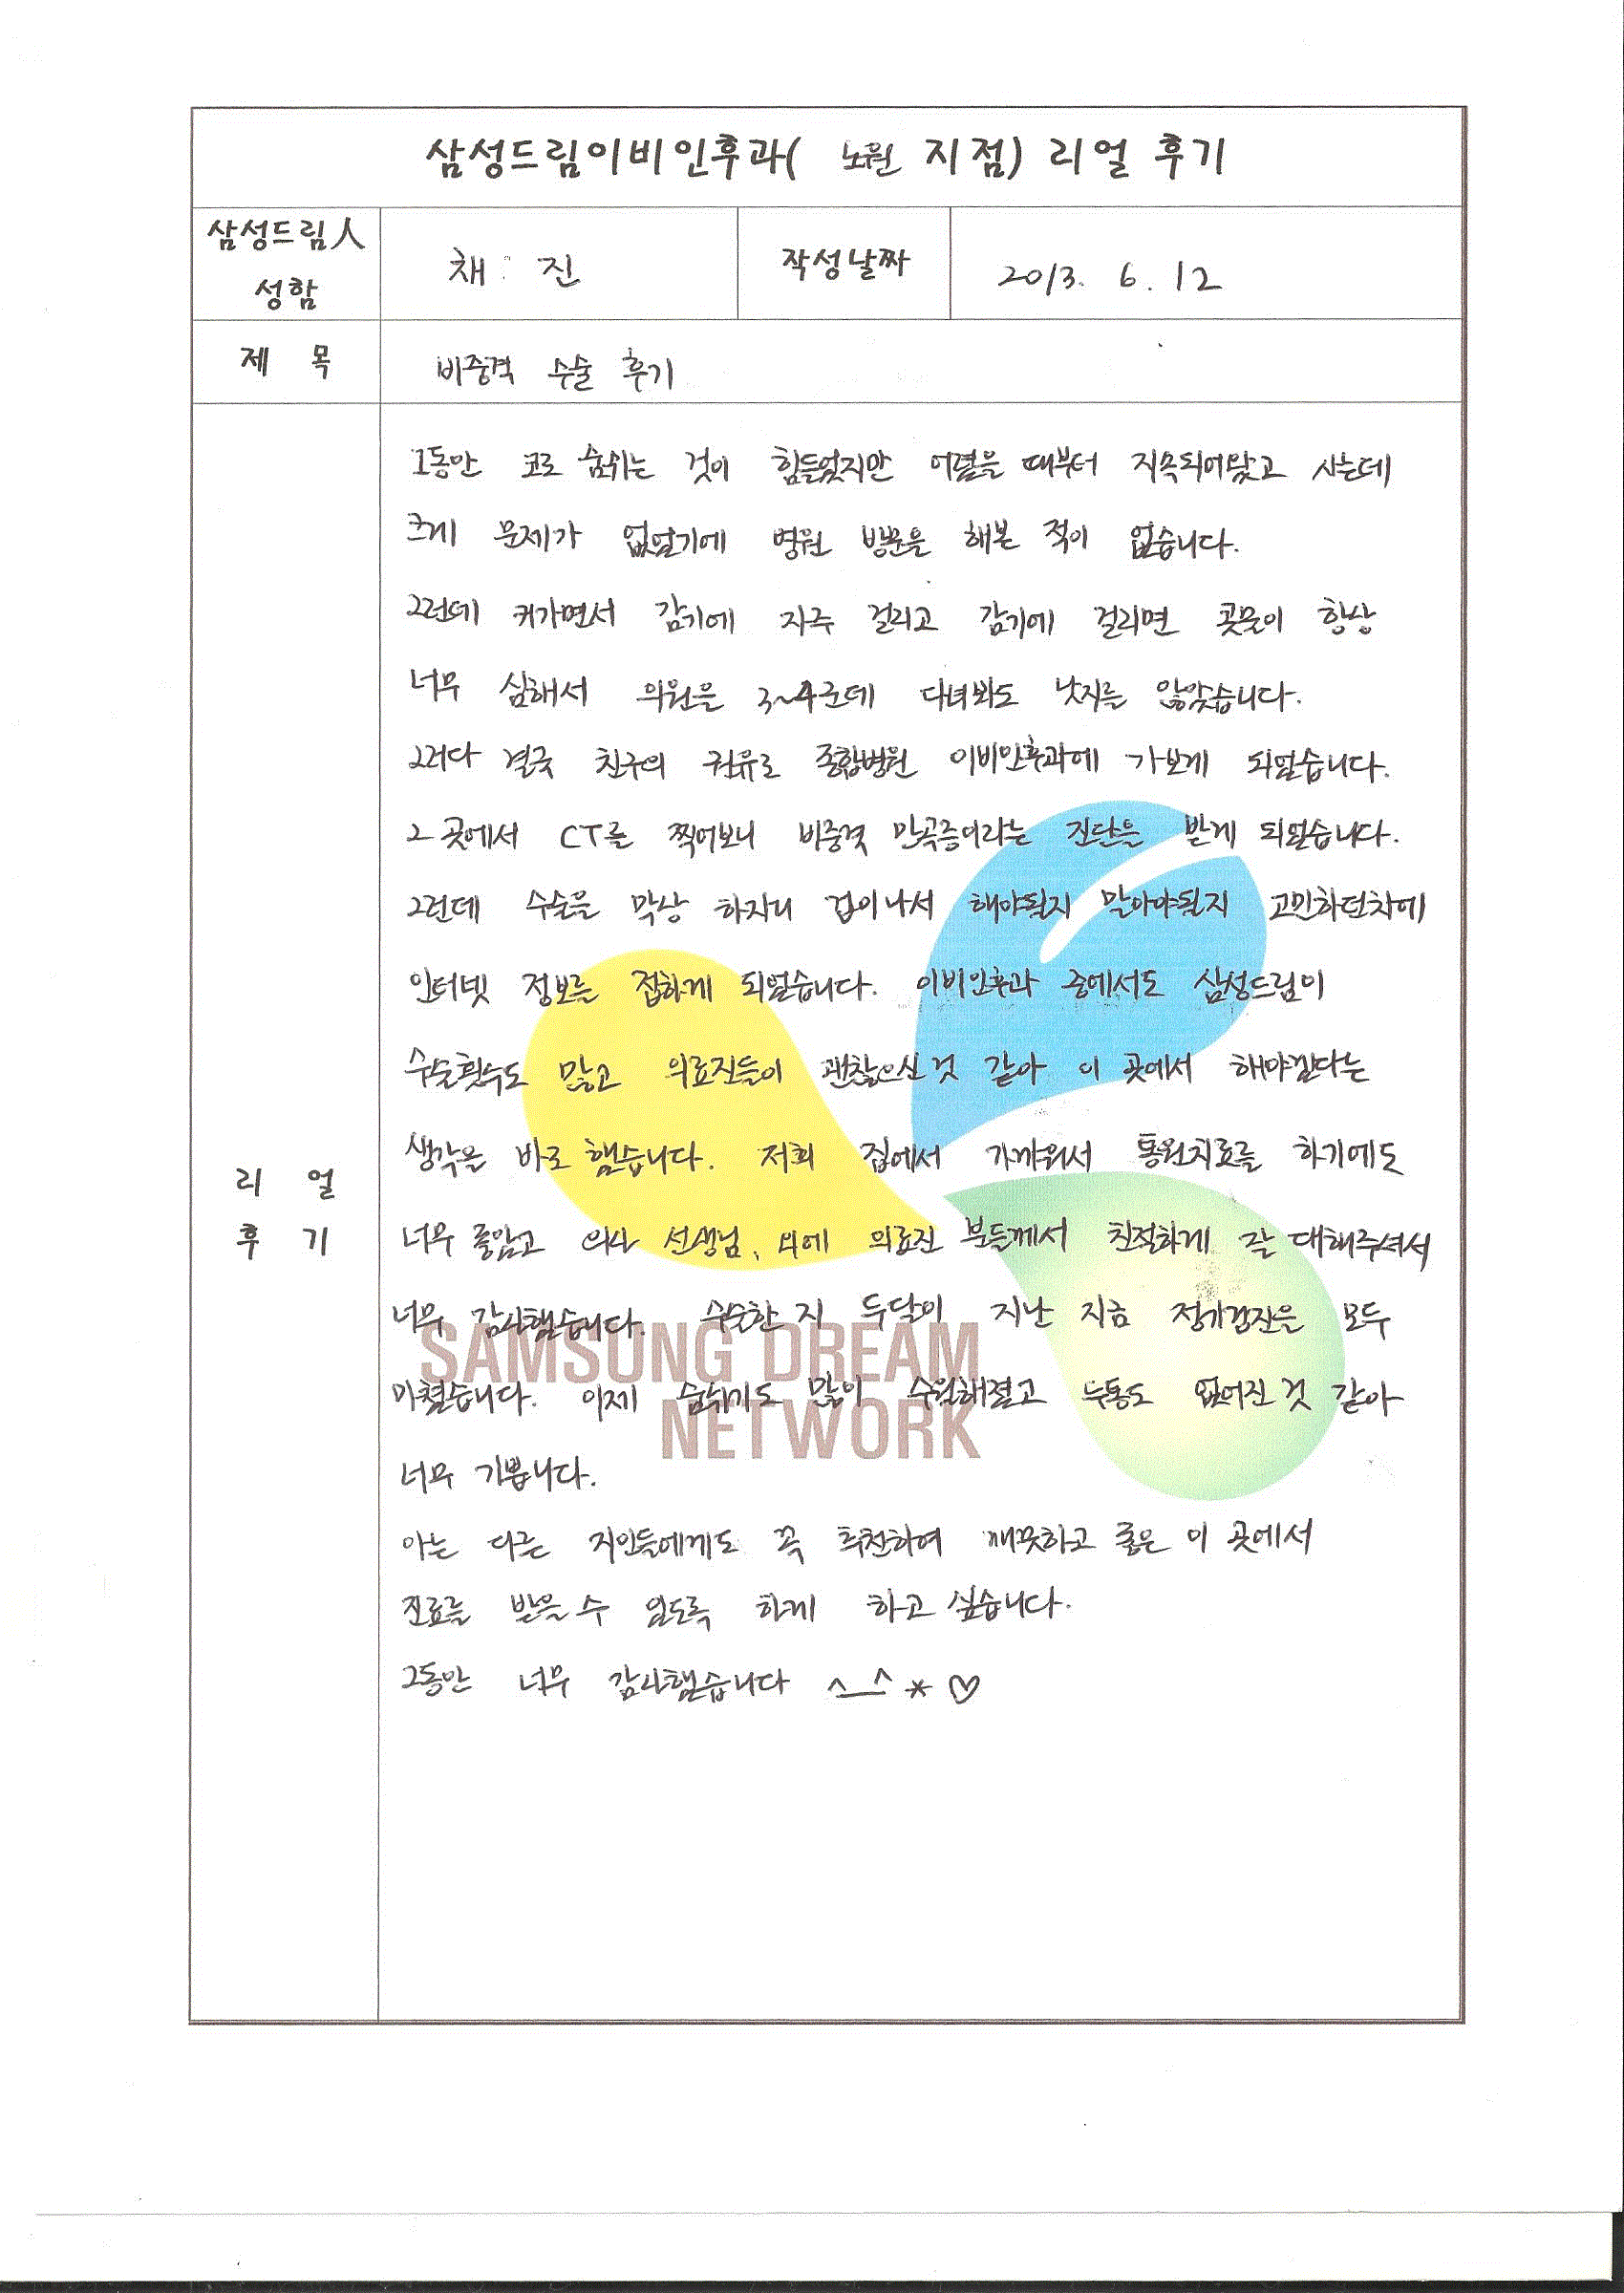 삼성드림이비인후과( 노원 지점) 리얼 후기
삼성드림人
성함
채 : 진
작성날짜
2013. 6. 12
제 목
비중격 수술 후기
리 얼
후 기
그동안 코로 숨쉬는 것이 힘들었지만 어렸을 때부터 지속되어왔고 사는데
크게 문제가 없었기에 병원 방문을 해본 적이 없습니다.
그런데 커가면서 감기에 자주 걸리고 감기에 걸리면 콧물이 항상
너무 심해서 의원을 3~4군데 다녀봐도 낫지를 않았습니다.
그러다 결국 친구의 권유로 종합병원 이비인후과에 가보게 되었습니다.
그 곳에서 CT를 찍어보니 비중격 만곡증이라는 진단을 받게 되었습니다.
그런데 수술을 막상 하자니 겁이나서 해야될지 말아야될지 고민하던차에
인터넷 정보를 접하게 되었습니다. 이비인후과 중에서도 삼성드림이
수술횟수도 많고 의료진들이 괜찮으신것 같아 이 곳에서 해야겠다는
생각을 바로 했습니다. 저희 집에서 가까워서 통원치료를 하기에도
너무 좋았고 의사 선생님, 외에 의료진 분들께서 친절하게 잘 대해주셔서
너무 감사했습니다. 수술한 지 두달이 지난 지금 정기검진을 모두
마쳤습니다. 이제 숨쉬기도 많이 수월해졌고 두통도 없어진것 같아
너무 기쁩니다.
아는 다른 지인들에게도 꼭 추천하여 깨끗하고 좋은 이 곳에서
진료를 받을 수 있도록 하게 하고 싶습니다.
그동안 너무 감사했습니다 ^__^ * ♡
SAMSUNG DREAM
NETWORK